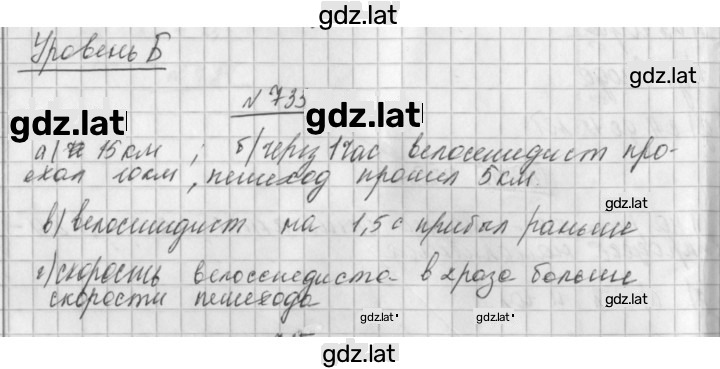 gdz.lat
Уровень Б
gdz.lat
№ 733
gdz.lat gdz.lat
а) 15 км ; б) через 1 час велосипедист про-
ехал 10 км, пешеход прошел 5 км.
gdz.lat
в) велосипедист на 1,5 с прибыл раньше
г) скорость велосипедиста в 2 раза больше
скорости пешехода
gdz.lat
gdz.lat gdz.lat
gdz.lat